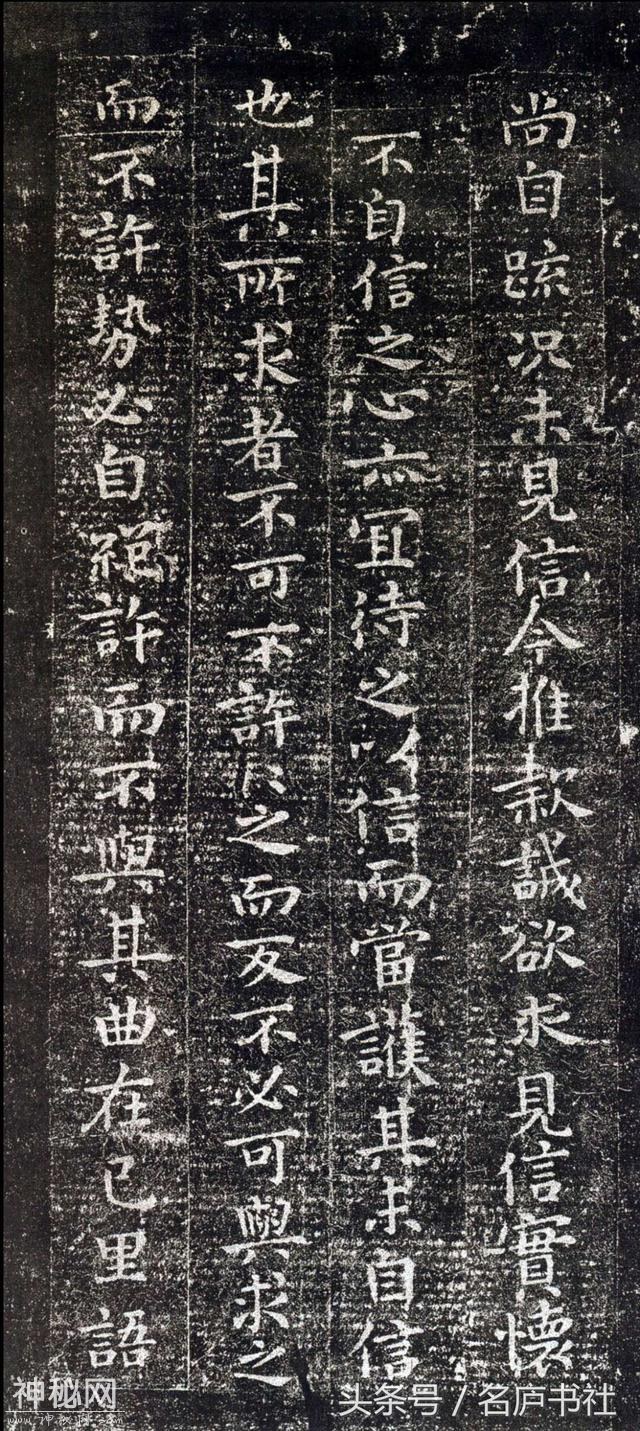 尚自疏况未見信今推款誠欲求見信實懷
不自信之心亦宜待之以信而當護其未自信
也其所求者不可不許許之而反不必可與求之
而不許勢必自絕許而不與其曲在己里語
神秘网
头条号 / 名庐书社